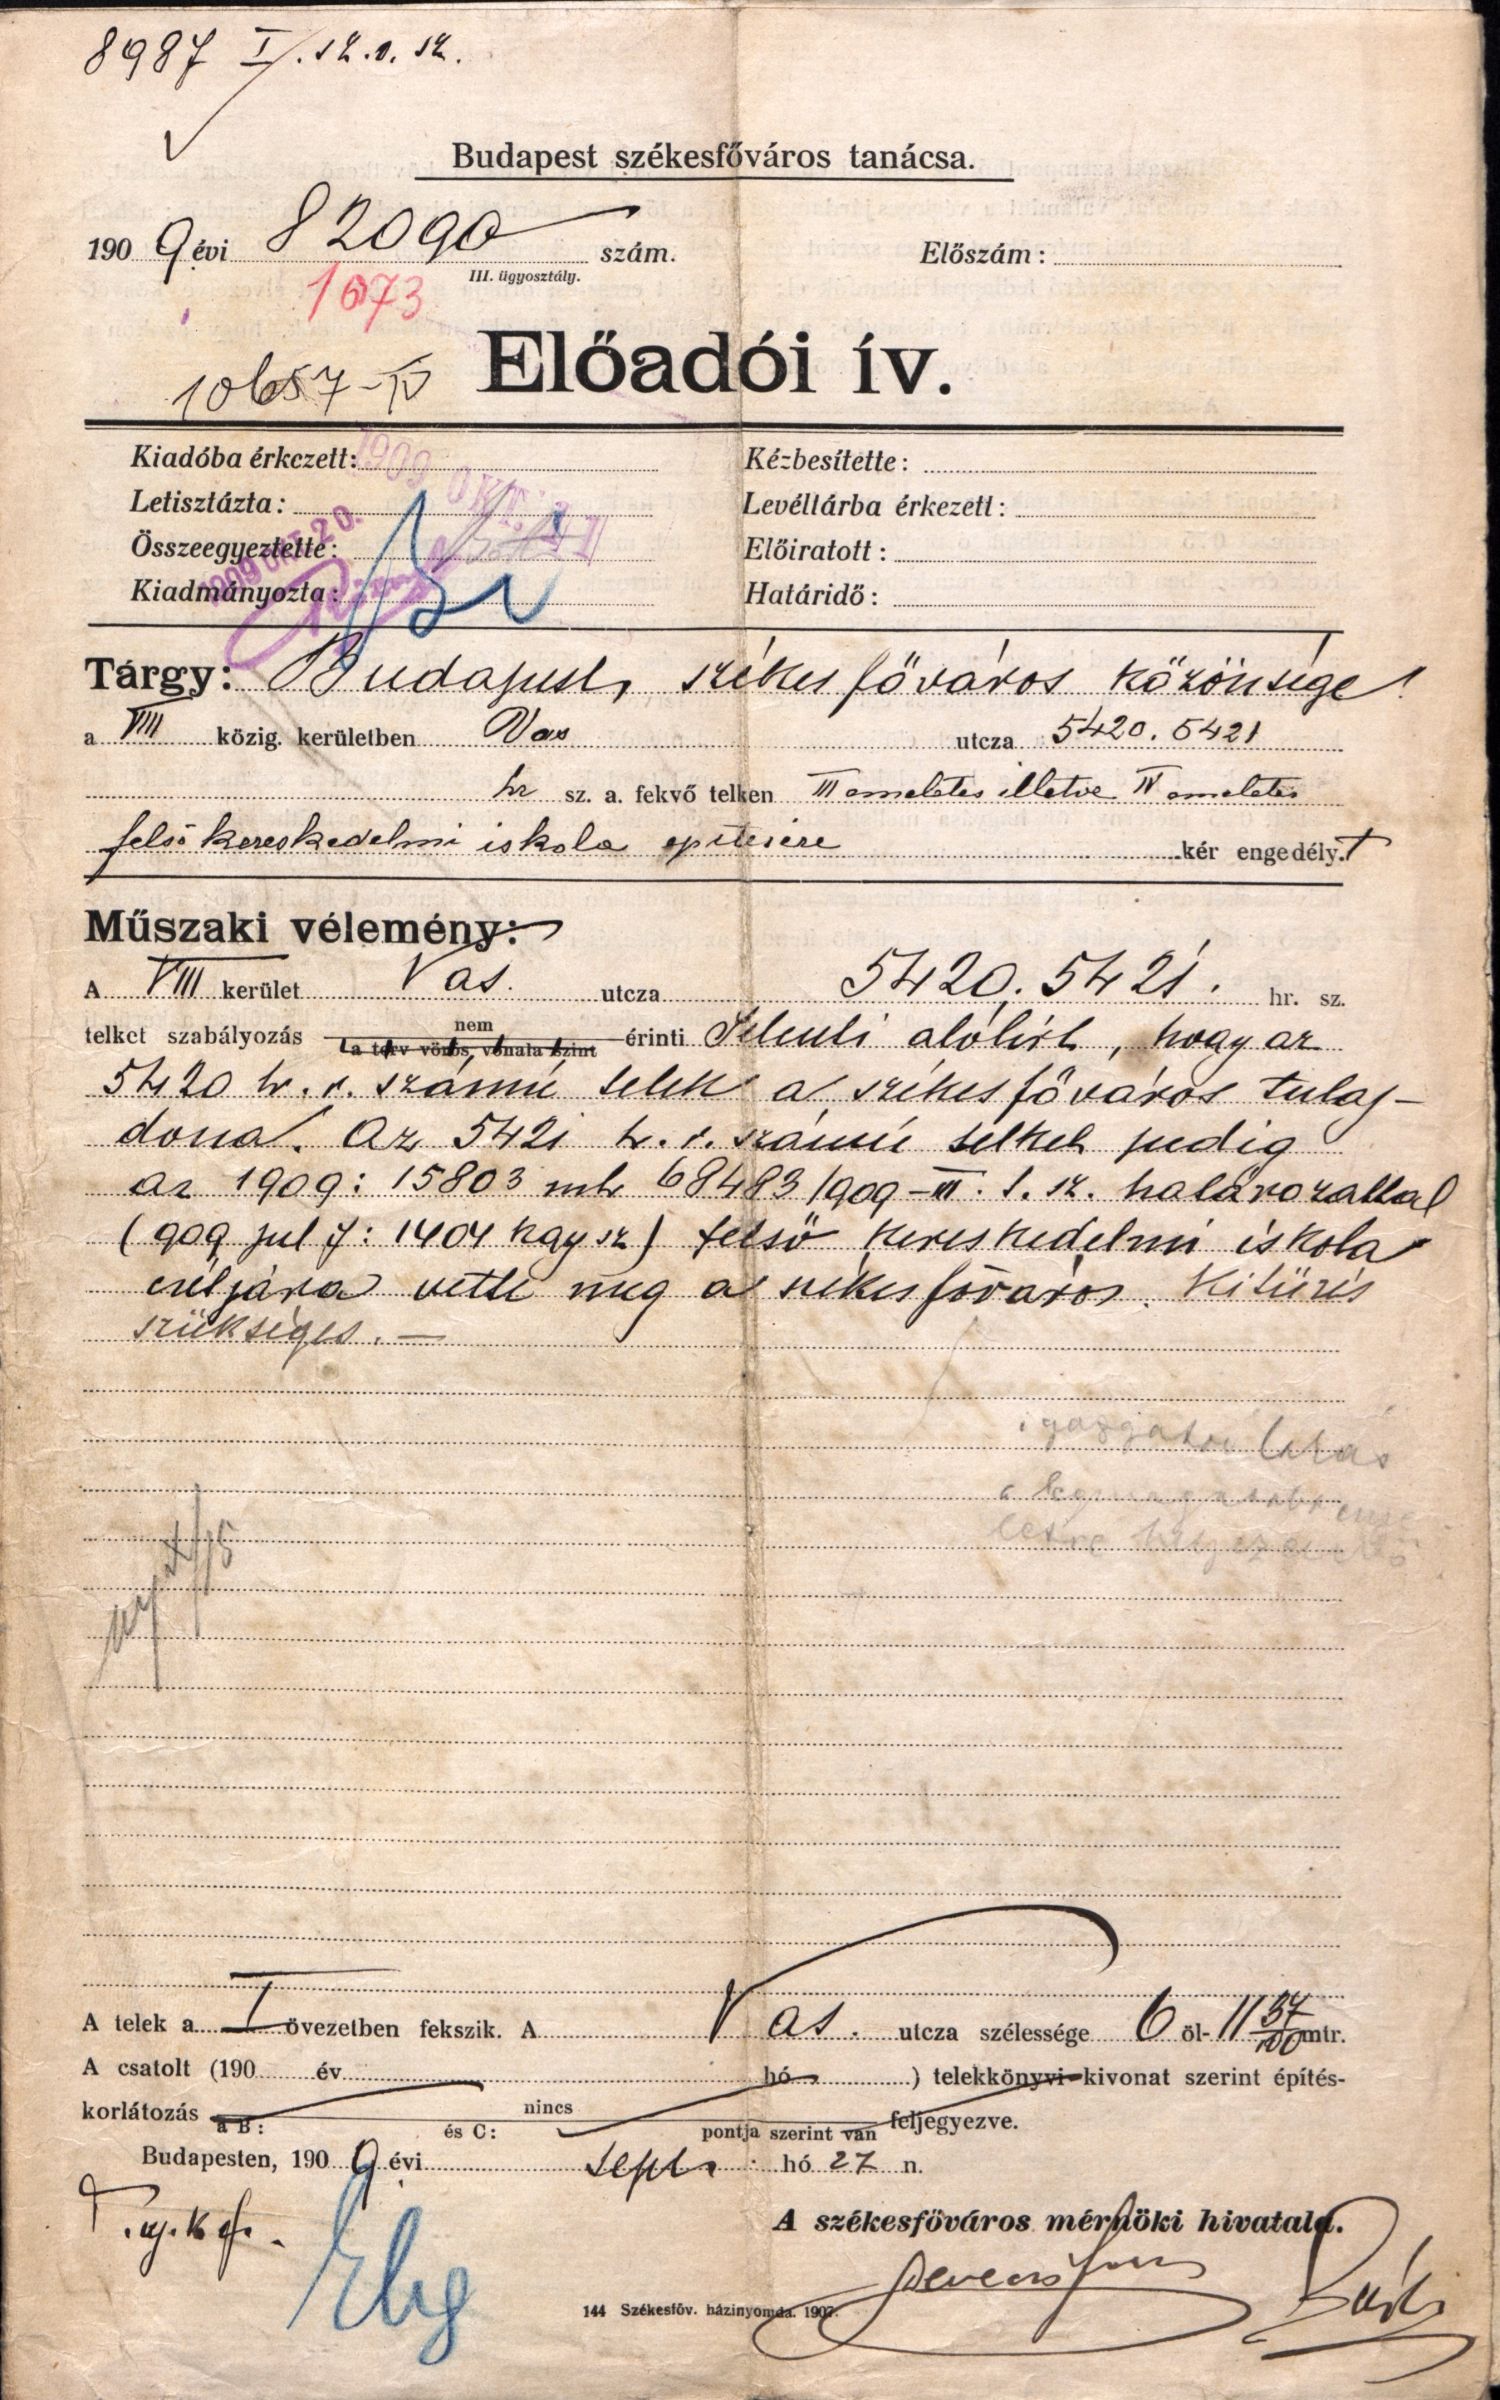 8987 I. sz. o. sz.
Budapest székesfőváros tanácsa.
1909 évi 82090 szám.
III. ügyosztály.
Előszám:
1073
Előadói ív.
10657-IV
Kiadóba érkezett: 1909 OKT.
Kézbesítette:
Letisztázta:
Levéltárba érkezett:
1909 OKT 20.
Összeegyeztette:
Előiratott:
Kiadmányozta:
Határidő:
Tárgy: Budapest, székes főváros közönsége
a VIII közig. kerületben Vas utcza 5420. 5421
hr sz. a. fekvő telken III emeletes illetve IV emeletes
felső kereskedelmi iskola építésére kér engedély.t
Műszaki vélemény:
A VIII kerület Vas. utcza 5420. 5421. hr. sz.
telket szabályozás nem érinti Jelenti alólirt, hogy az
a terv vörös, vonala szint
5420 h. r. számú telek a székes főváros tulaj-
dona. Az 5421 h. r. számú telket pedig
az 1909: 15803 mh 68483/909-III. t. sz. határozattal
(909 jul 7: 1404 kgy sz) felső kereskedelmi iskola
czéljára vette meg a székesfőváros. Kitűzés
szükséges. —
igazgatói lakás
a legmagasabb eme
letre helyezendő
A telek a I övezetben fekszik. A Vas. utcza szélessége 6 öl- 11 37/100 mtr.
A csatolt (190 év hó ) telekkönyvi kivonat szerint építés-
korlátozás nincs feljegyezve.
a B: és C: pontja szerint van
Budapesten, 1909 évi sept. hó 27 n.
A székesfőváros mérnöki hivatala.
144 Székesföv. házinyomda. 1907.